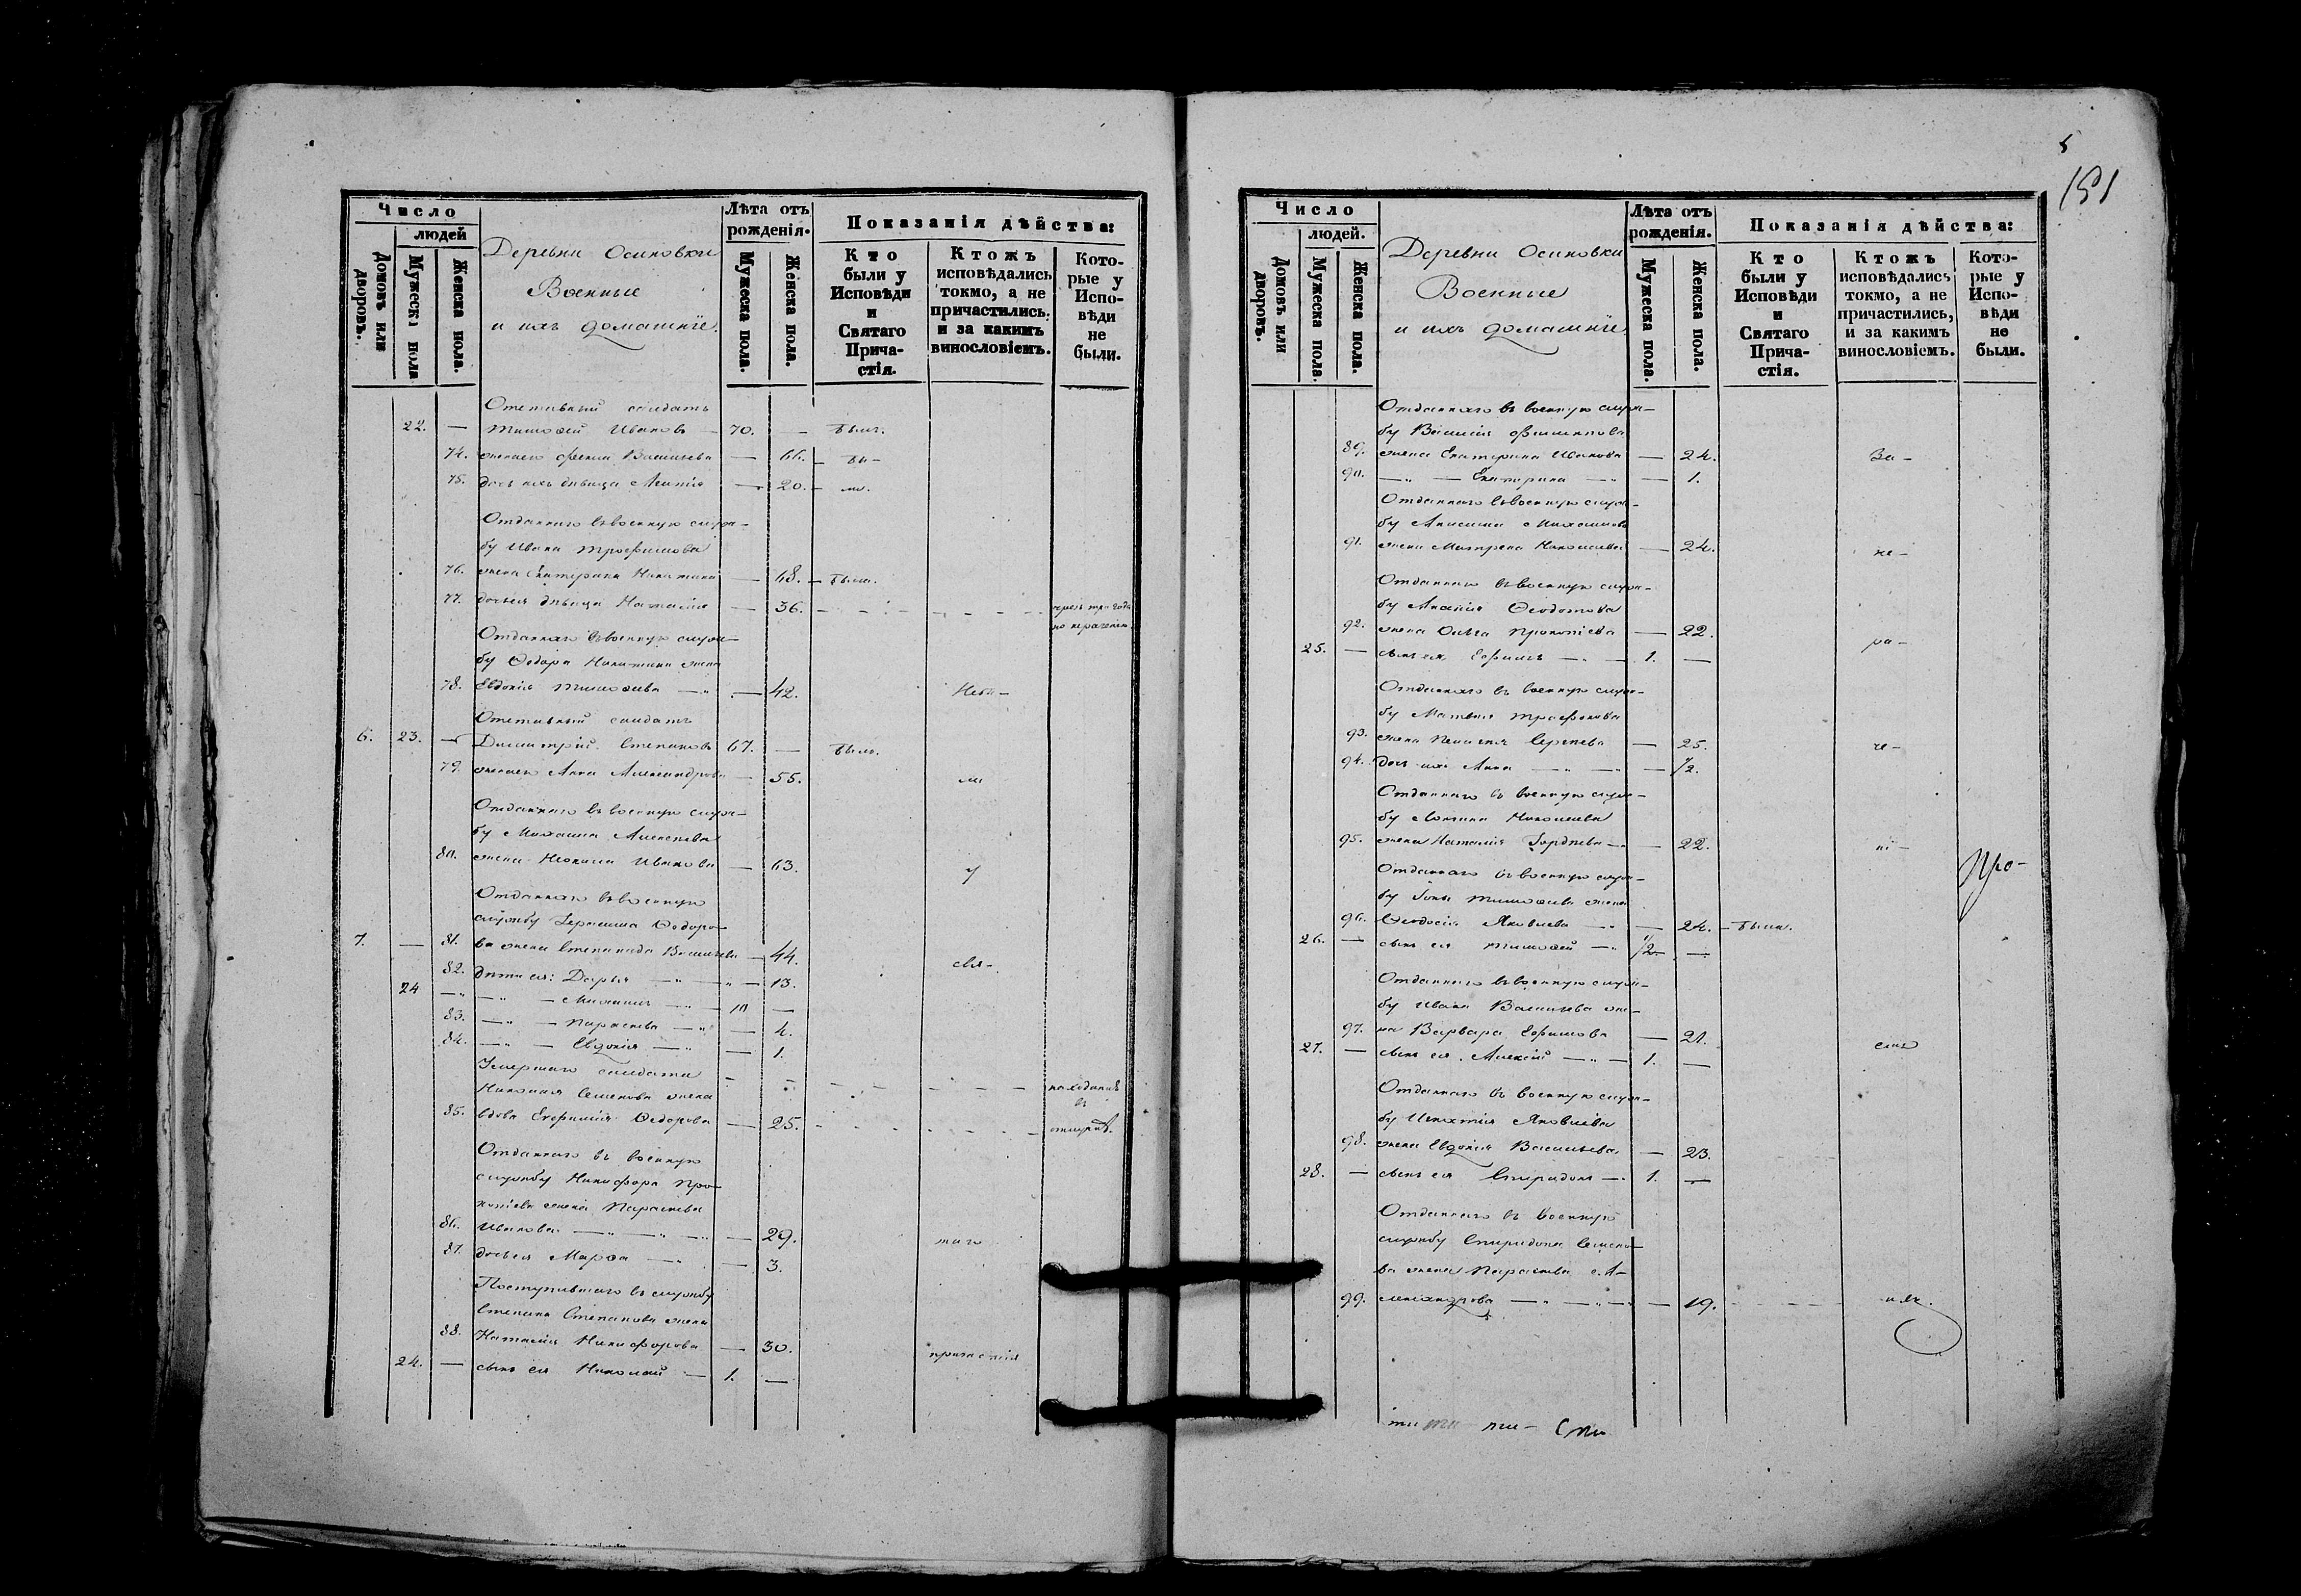 5
151
Число
людей
Домовъ или дворовъ.
Мужеска пола
Женска пола.
Деревни Осиновки
Военные
и ихъ домашнїе.
Лѣта отъ рожденія.
Мужеска пола.
Женска пола.
Показанія дѣйства:
Кто были у Исповѣди и Святаго Причастія.
Ктожъ исповѣдались токмо, а не причастились, и за какимъ винословіемъ.
Которые у Исповѣди не были.
Отставный солдатъ
22. — Тимофей Ивановъ — 70. — былъ.
74. жена его Васильева — 66.
75. дочь ихъ дѣвица — 20.
Отданнаго въ военную служ-
бу Ивана Трофимова
76. жена Екатерина Никитина — 68. — была.
77. дочь ея дѣвица Наталія — 36.
Отданнаго въ военную служ-
бу Ѳедора Никитина жена
78. Евдокія Тимофеева — 42.
Отставный солдатъ
6. 23. — Димитрій Степановъ 67. — былъ.
79. жена его Анна Александрова — 55.
Отданнаго въ военную служ-
бу Михаила Алексѣева
80. жена Ивановна — 63. у
Отданнаго въ военную
службу Герасима Ѳедоро-
7. — 81. ва жена Степанида Васильева — 44. свя-
82. дѣти ея: Дарья — 13.
24 Михаилъ — 10 —
83. Параскева — 4.
84. Евдокія — 1.
Умершаго солдата
Николая Семенова жена
85. вдова Евфимія Ѳедорова — 25.
въ
Отданнаго въ военную
службу Никифора Про-
копіева жена Параскева
86. Иванова — 29. таго
87. дочь ея Марѳа — 3.
Поступившаго въ службу
Степана Степанова жена
88. Наталія Никифорова — 30. причастія
24. — сынъ ея Николай — 1. —
Число
людей.
Домовъ или дворовъ.
Мужеска пола.
Женска пола.
Деревни Осиновки
Военные
и ихъ домашнїе
Лѣта отъ рожденія.
Мужеска пола.
Женска пола.
Показанія дѣйства:
Кто были у Исповѣди и Святаго Причастія.
Ктожъ исповѣдались токмо, а не причастились, и за какимъ винословіемъ.
Которые у Исповѣди не были.
Отданнаго въ военную служ-
бу Василія Филиппова
89. жена Екатерина Иванова — 24. За-
90. Екатерина — 1.
Отданнаго въ военную служ-
бу Анисима Михайлова
91. жена Матрена Николаева — 24. не-
Отданнаго въ военную служ-
бу Ананія Ѳеодотова
92. жена Ольга Прокопіева — 22. ра-
25. — сынъ ея Ефимъ — 1. —
Отданнаго въ военную служ-
бу Матвея Трофимова
93. жена Пелагея Сергѣева — 25. че-
94. дочь ихъ Анна — 1/2.
Отданнаго въ военную служ-
бу Николаева
95. жена Наталія Гордѣева — 22. ні-
Отданнаго въ военную служ-
бу Іоны Тимофеева жена
96. Ѳеодосія Яковлева — 24. — была.
26. — сынъ ея Тимофей — 1/2 —
Отданнаго въ военную служ-
бу Ивана Васильева же-
97. на Варвара Ефимова — 21. емъ
27. — сынъ ея Алексій — 1. —
Отданнаго въ военную служ-
бу Игнатія Яковлева
98. жена Евдокія Васильева — 23.
28. — сынъ ея Спиридонъ — 1. —
Отданнаго въ военную
службу Спиридона Семено-
ва жена Параскева А-
99. лександрова — 19.
Про-